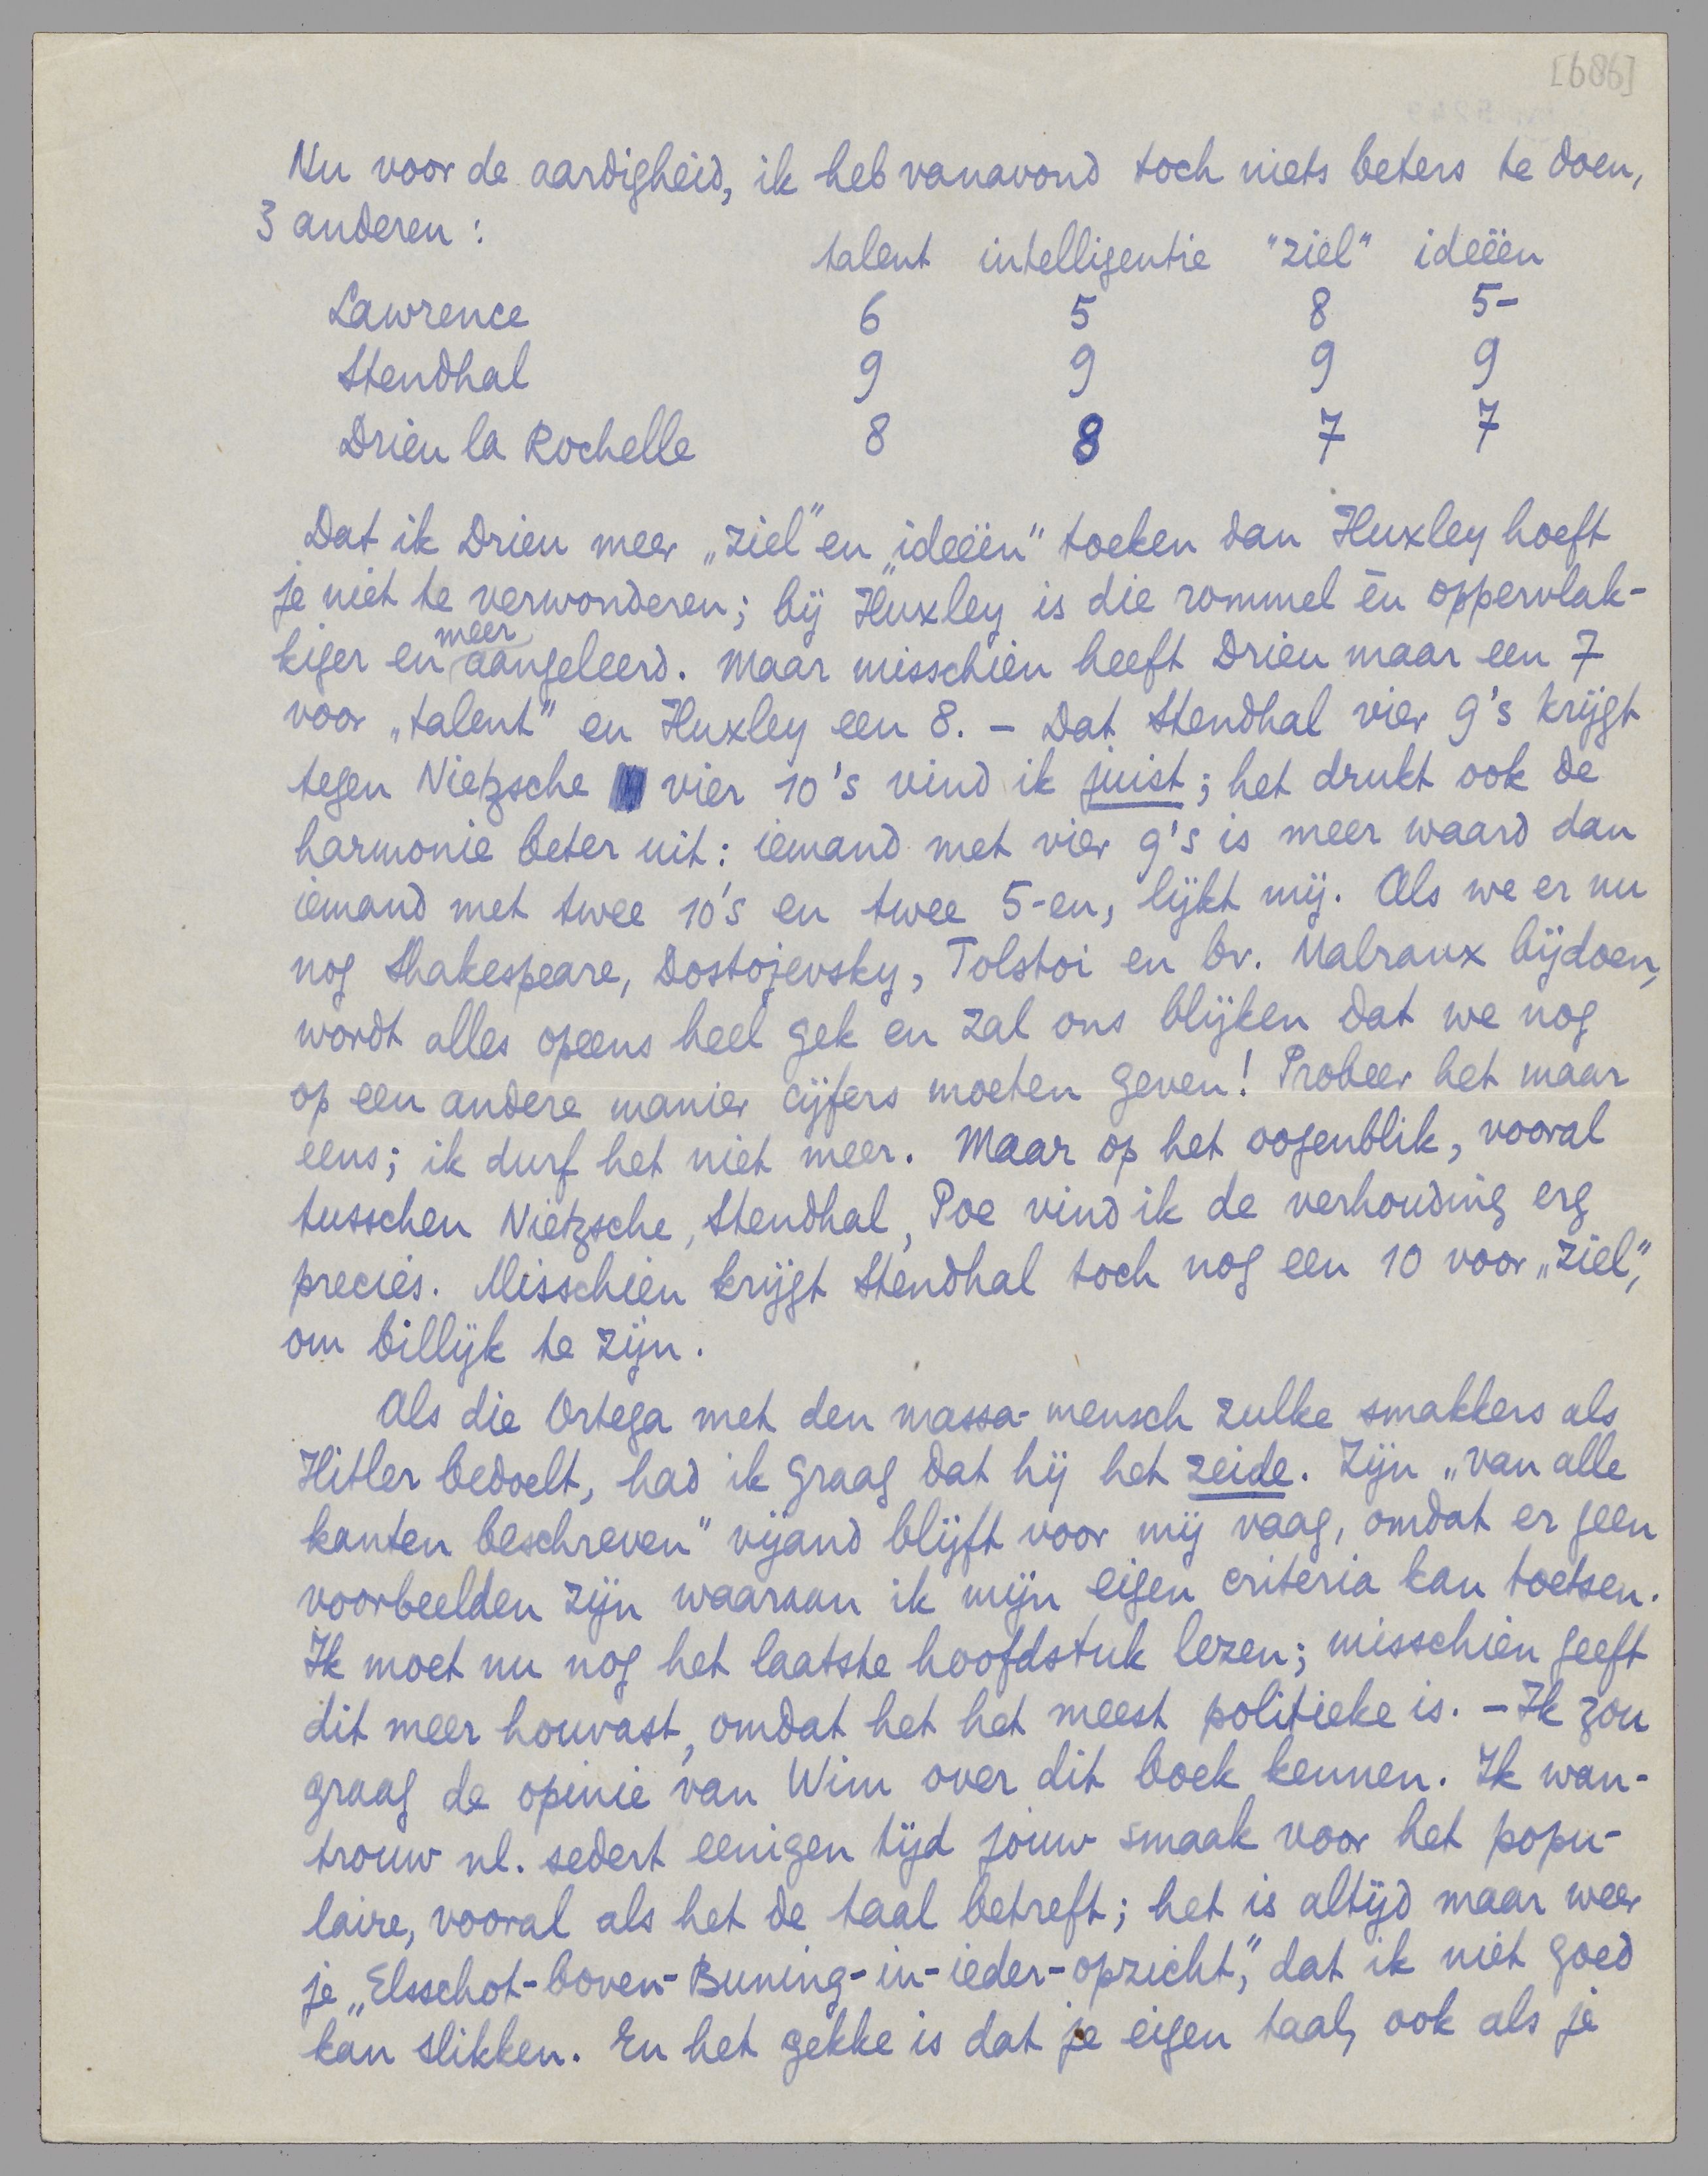 [686]
Nu voor de aardigheid, ik heb vanavond toch niets beters te doen,
3 anderen :
talent intelligentie "ziel" ideeën
Lawrence 6 5 8 5-
Stendhal 9 9 9 9
Drieu la Rochelle 8 8 7 7
Dat ik Drieu meer „ziel" en „ideëen" toeken dan Huxley hoeft
je niet te verwonderen; bij Huxley is die rommel èn oppervlak-
kiger en meer aangeleerd. Maar misschien heeft Drieu maar een 7
voor „talent" en Huxley een 8. – Dat Stendhal vier 9's krijgt
tegen Nietzsche vier 10's vind ik juist; het drukt ook de
harmonie beter uit: iemand met vier 9's is meer waard dan
iemand met twee 10's en twee 5-en, lijkt mij. Als we er nu
nog Shakespeare, Dostojevsky, Tolstoi en bv. Malraux bijdoen,
wordt alles opeens heel gek en zal ons blijken dat we nog
op een andere manier cijfers moeten geven! Probeer het maar
eens; ik durf het niet meer. Maar op het oogenblik, vooral
tusschen Nietzsche, Stendhal, Poe vind ik de verhouding erg
precies. Misschien krijgt Stendhal toch nog een 10 voor „ziel",
om billijk te zijn.
Als die Ortega met den massa-mensch zulke smakkers als
Hitler bedoelt, had ik graag dat hij het zeide. Zijn „van alle
kanten beschreven" vijand blijft voor mij vaag, omdat er geen
voorbeelden zijn waaraan ik mijn eigen criteria kan toetsen.
Ik moet nu nog het laatste hoofdstuk lezen; misschien geeft
dit meer houvast, omdat het het meest politieke is. – Ik zou
graag de opinie van Wim over dit boek kennen. Ik wan-
trouw nl. sedert eenigen tijd jouw smaak voor het popu-
laire, vooral als het de taal betreft; het is altijd maar weer
je „Elsschot-boven-Buning-in-ieder-opzicht", dat ik niet goed
kan slikken. En het gekke is dat je eigen taal, ook als je